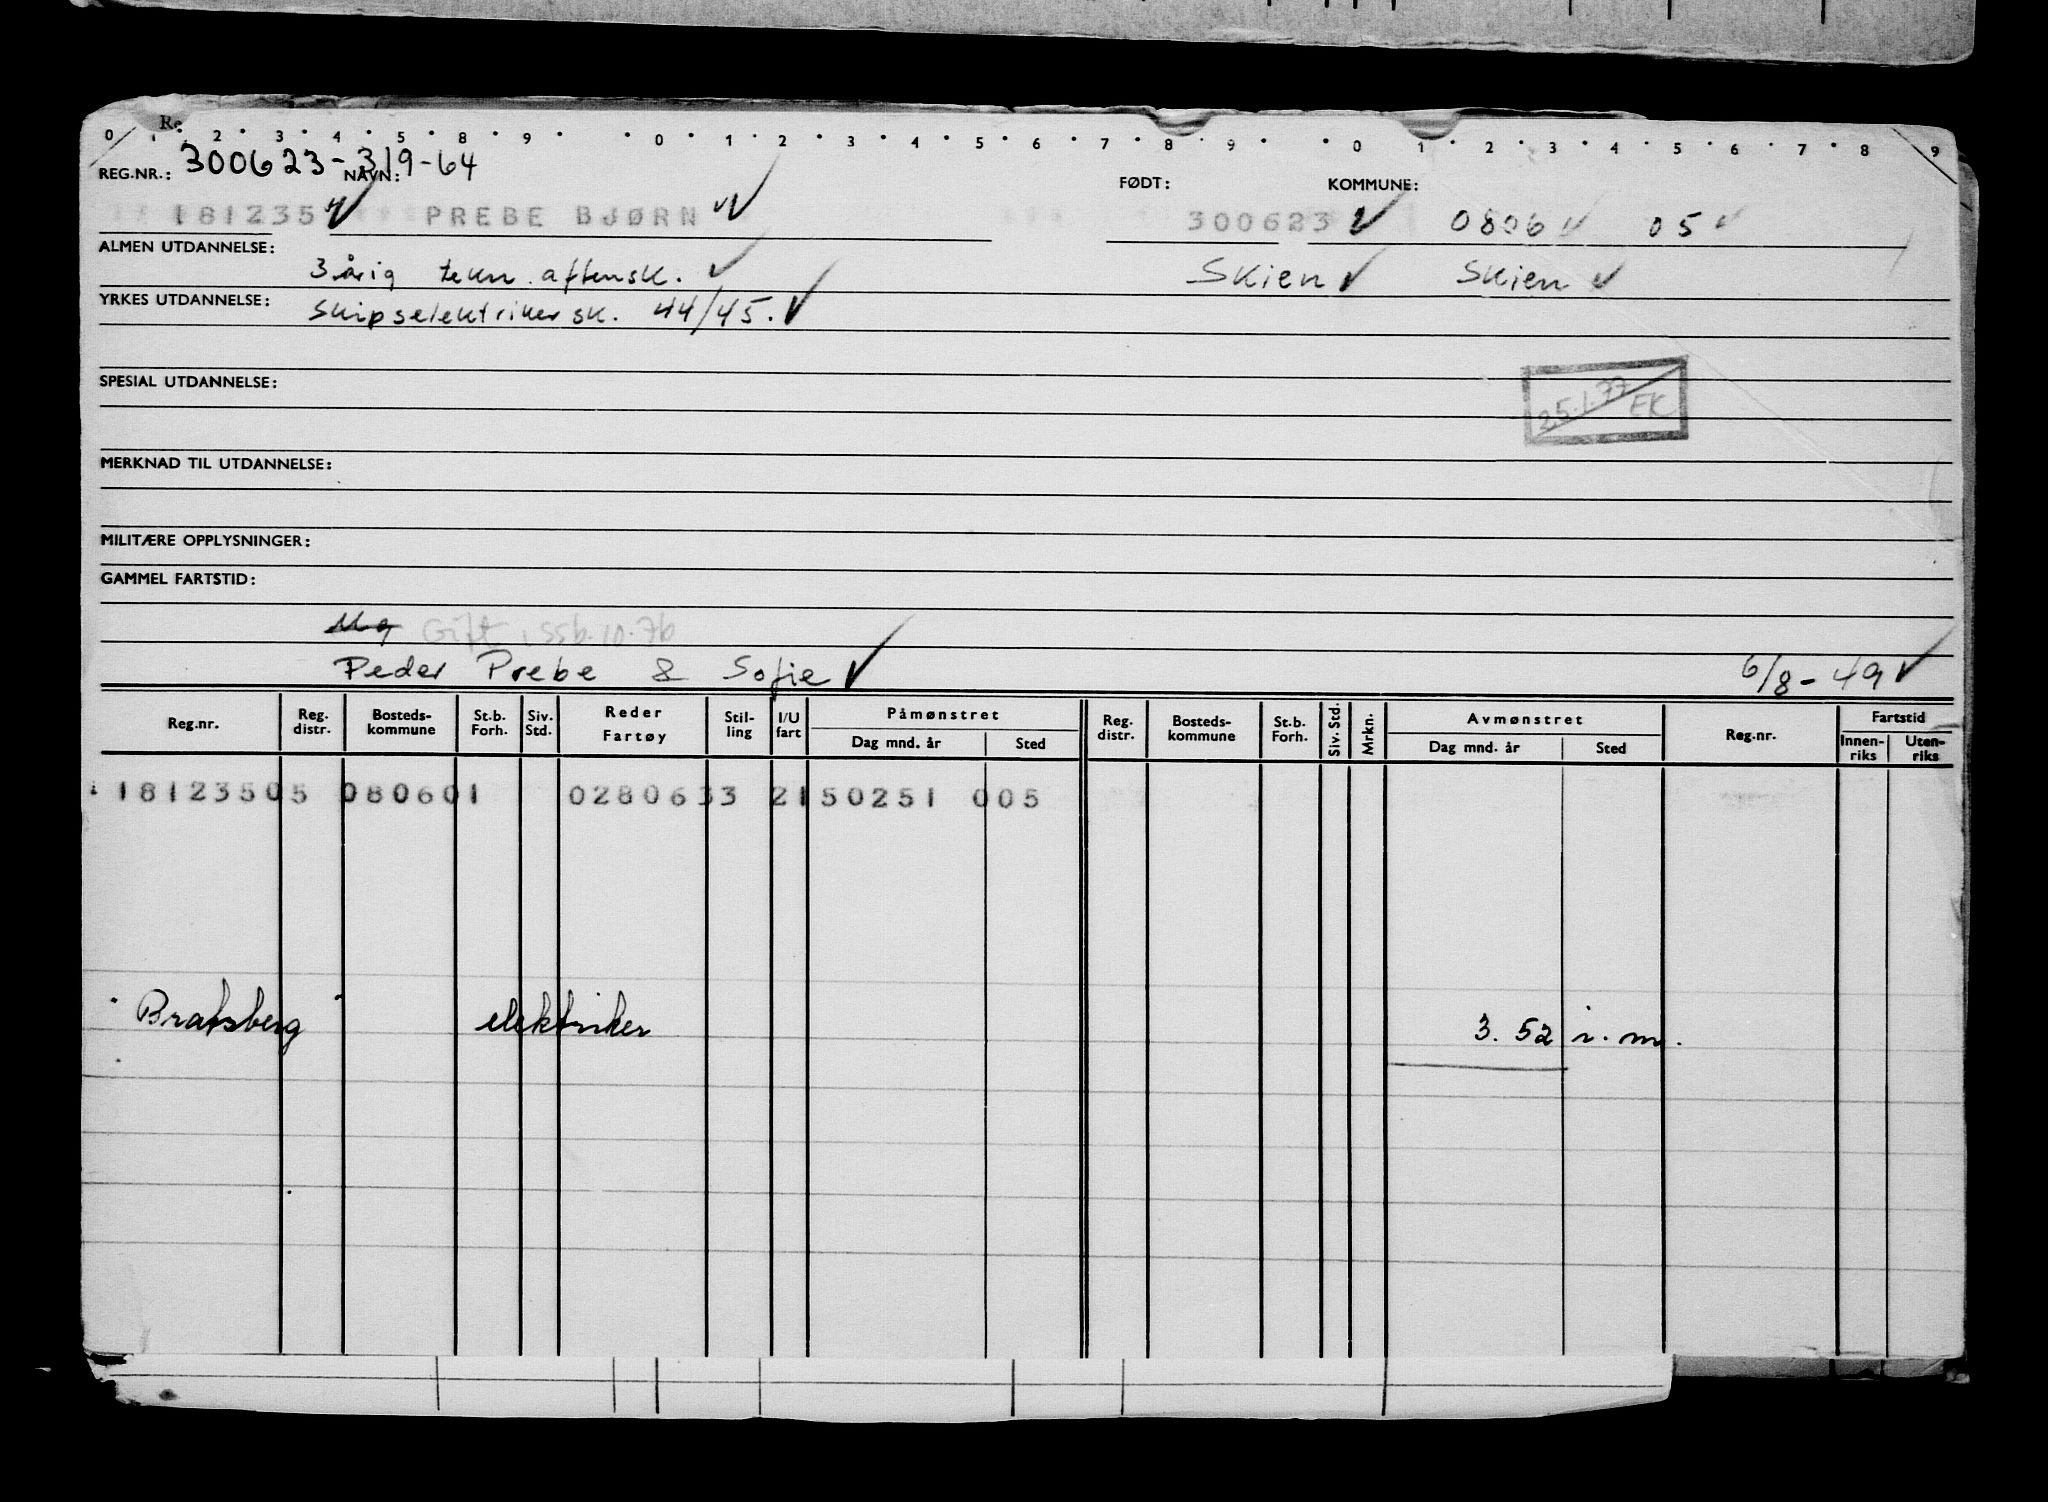 Re
0 1 2 3 4 5 8 9 0 1 2 3 4 5 6 7 8 9 0 1 2 3 4 5 6 7 8 9
REG.NR.: 300623-319-64 NAVN: FØDT: KOMMUNE:
181235 PREBE BJØRN 300623 0806 05
ALMEN UTDANNELSE: 3-årig tekn. aftensk. Skien Skien
YRKES UTDANNELSE: Skipselektrikersk. 44/45.
SPESIAL UTDANNELSE:
25.1.77 EK
MERKNAD TIL UTDANNELSE:
MILITÆRE OPPLYSNINGER:
GAMMEL FARTSTID:
Ug Gift, SSb. 10.76
Peder Prebe & Sofie 6/8-49
Reg.nr. Reg. distr. Bosteds-kommune St.b. Forh. Siv. Std. Reder Fartøy Stil-ling I/U fart Påmønstret Dag mnd. år Sted Reg. distr. Bosteds-kommune St.b. Forh. Siv. Std. Mrkn. Avmønstret Dag mnd. år Sted Reg.nr. Fartstid Innen-riks Uten-riks
18123505 080601 0280633 2150251 005
"Bratsberg" elektriker 3. 52 i. m.